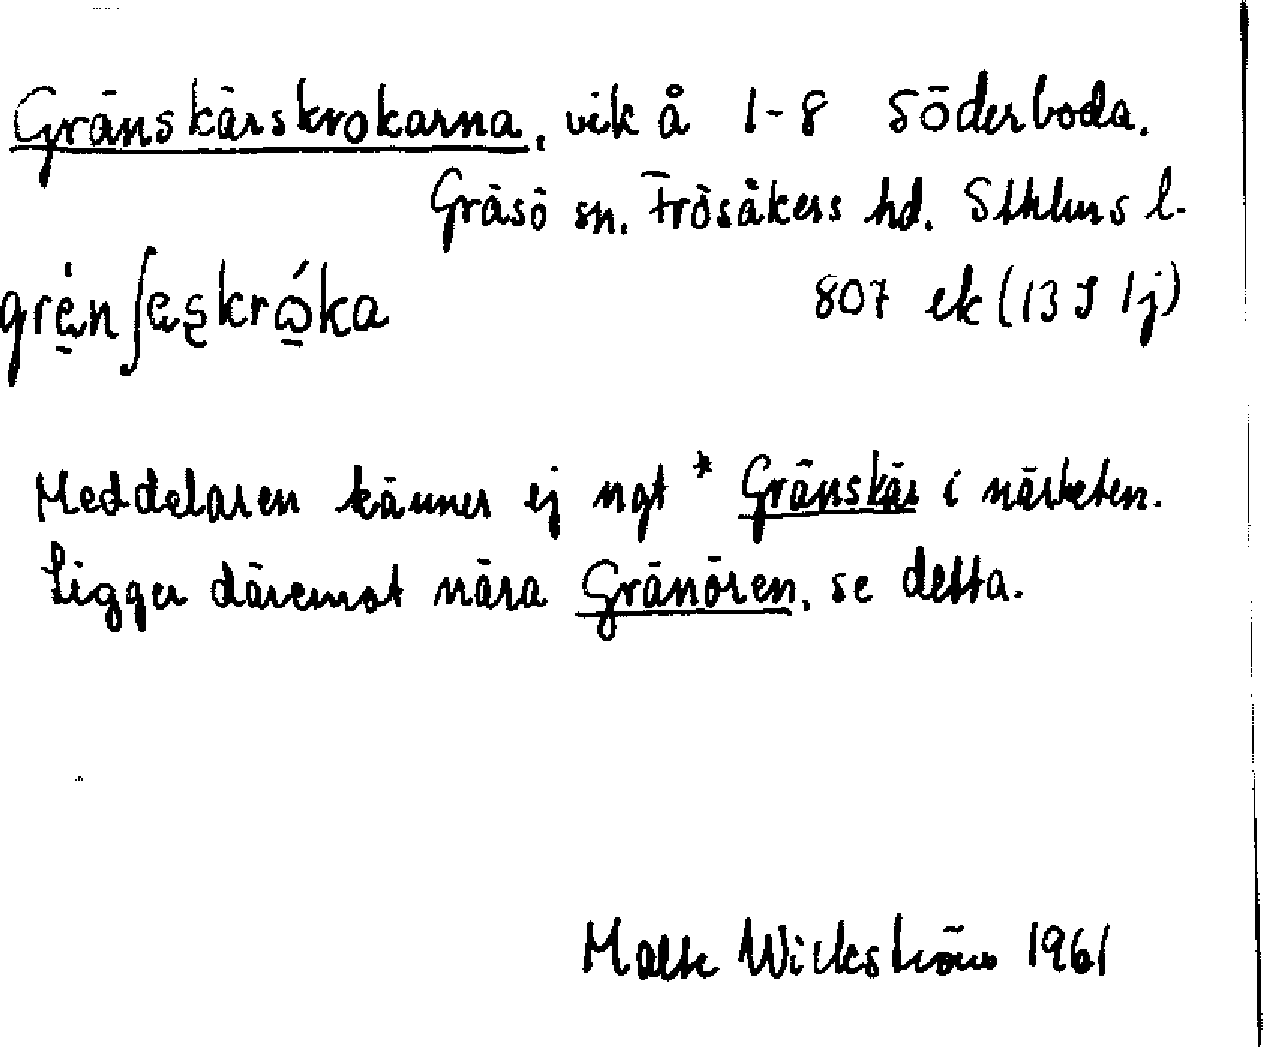 Gränskärskrokarna, vik å 1-8 Söderboda.
Gräsö sn. Frösåkers hd. Sthlms l.
807 ek (13 I 1j)
Meddelaren känner ej ngt * Gränskär i närheten.
Ligger däremot nära Gränören, se detta.
Malte Wickström 1961